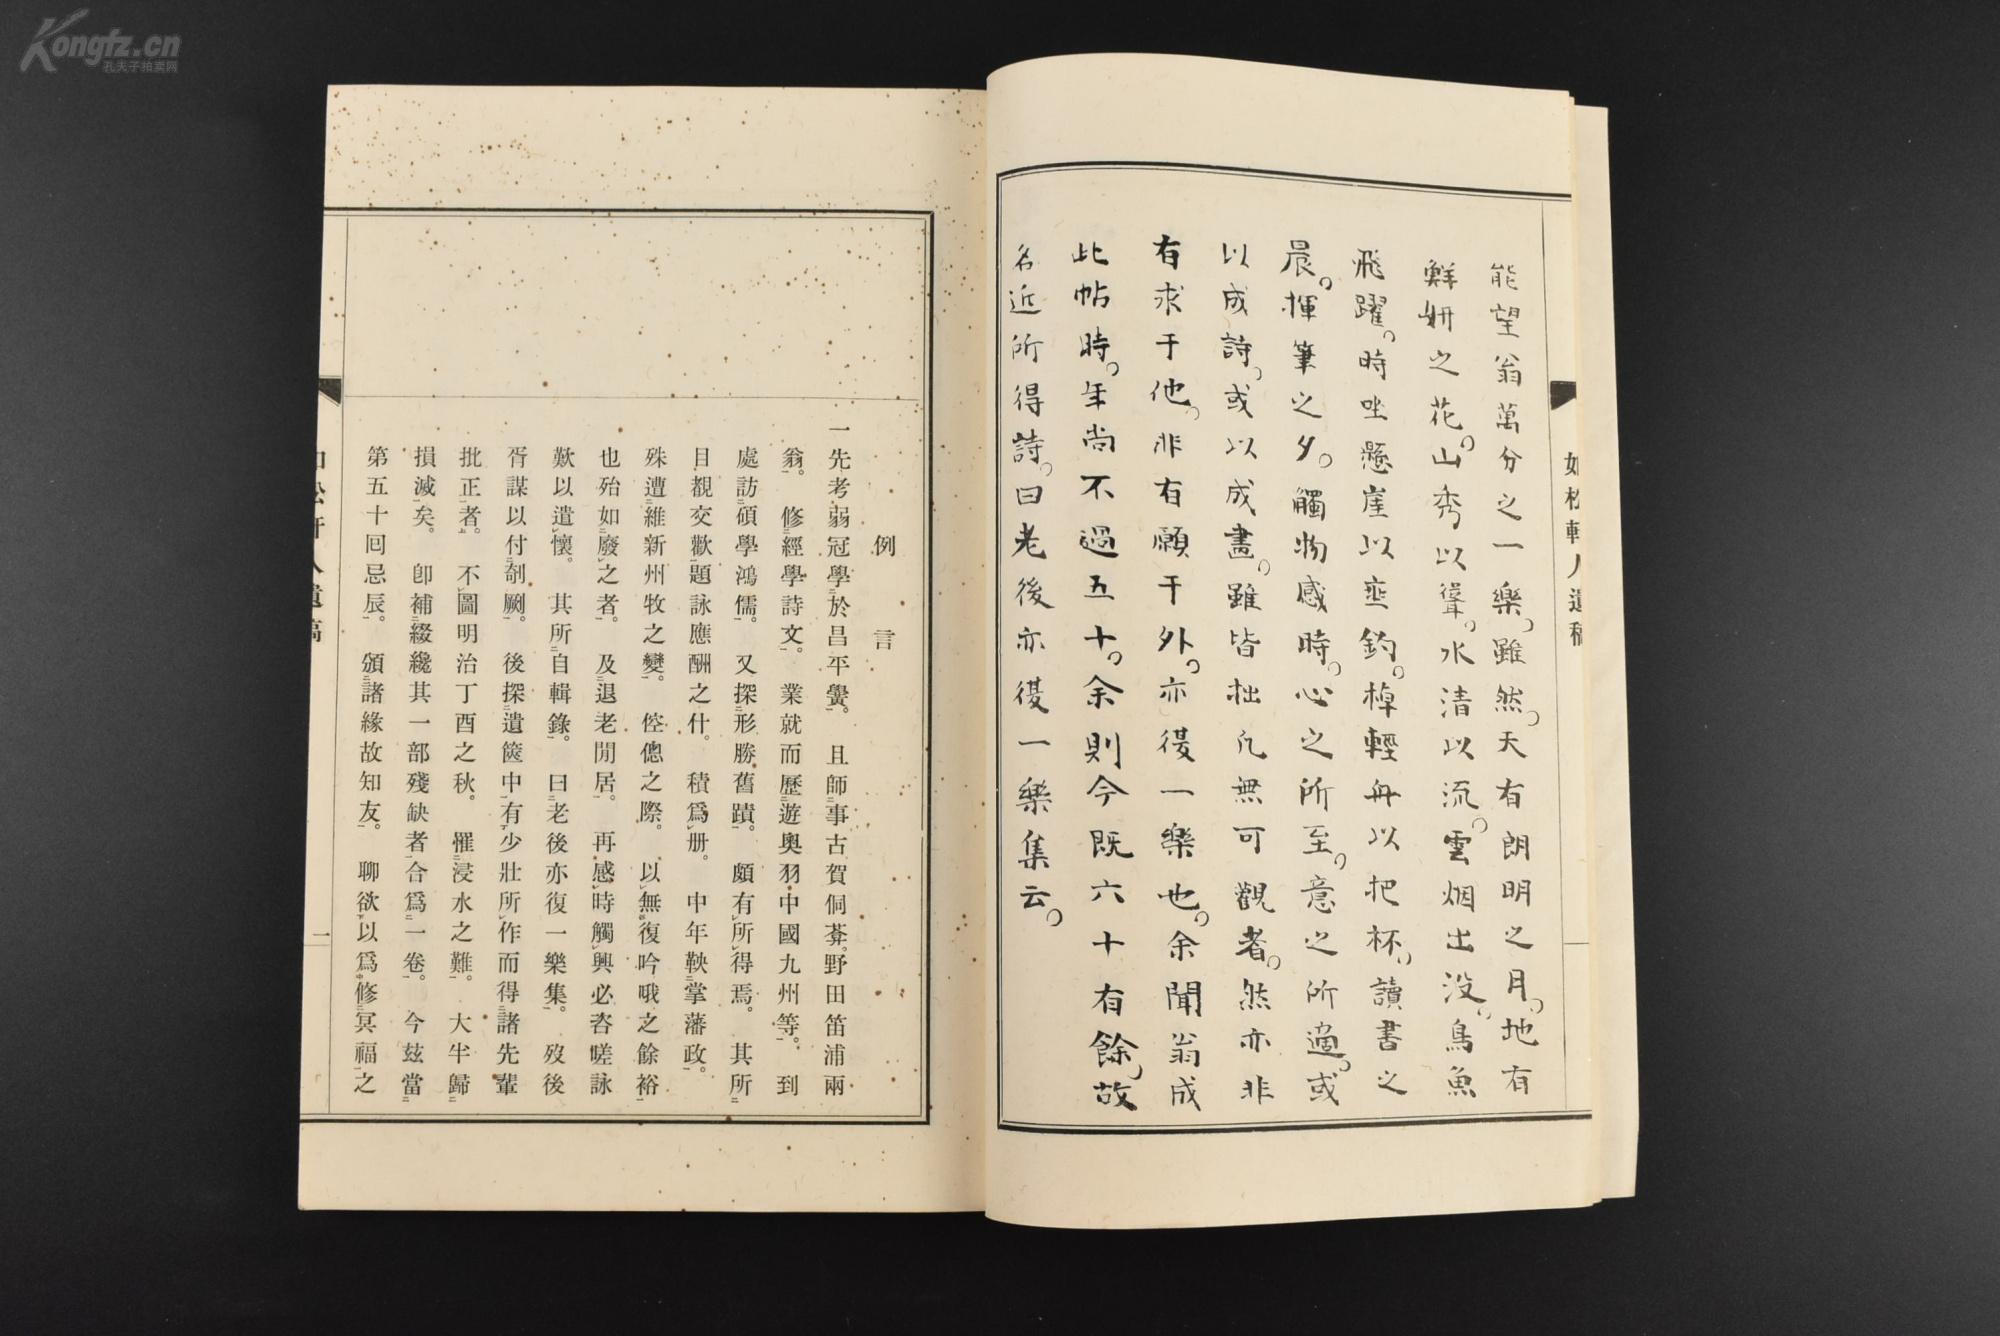 Kongfz.cn
孔夫子拍卖网
如松軒人遺稿
能望翁萬分之一樂。雖然。天有朗明之月。地有
鮮妍之花。山秀以聳。水清以流。雲烟出没。鳥魚
飛躍。時坐懸崖以垂釣。棹輕舟以把杯。讀書之
晨。揮筆之夕。觸物感時。心之所至。意之所適。或
以成詩。或以成畫。雖皆拙凡無可觀者。然亦非
有求于他。非有願于外。亦復一樂也。余聞翁成
此帖時。年尚不過五十。余則今既六十有餘。故
名近所得詩。曰老後亦復一樂集云。
例言
一先考弱冠學於昌平黌。且師事古賀侗菴。野田笛浦兩
翁。修經學詩文。業就而歷遊奧羽中國九州等。到
處訪碩學鴻儒。又探形勝舊蹟。頗有所得焉。其所
目覩交歡題詠應酬之什。積爲册。中年鞅掌藩政。
殊遭維新州牧之變。倥傯之際。以無復吟哦之餘裕
也殆如廢之者。及退老閒居。再感時觸興必咨嗟詠
歎以遣懷。其所自輯錄。曰老後亦復一樂集。歿後
胥謀以付剞劂。後探遺篋中有少壯所作而得諸先輩
批正者。不圖明治丁酉之秋。罹浸水之難。大半歸
損滅矣。卽補綴纔其一部殘缺者合爲一卷。今玆當
第五十囘忌辰。頒諸緣故知友。聊欲以爲修冥福之
一